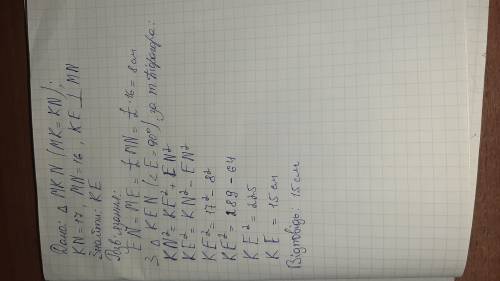 Дано: △ MKN (MK = KN);
KN = 17, MN = 16, KE ⊥ MN
Знайти: KE
Розв'язання:
EN = ME = 1/2 MN = 1/2 · 16 = 8 см
З △ KEN (∠E = 90°), за т. Піфагора:
KN² = KE² + EN²
KE² = KN² - EN²
KE² = 17² - 8²
KE² = 289 - 64
KE² = 225
KE = 15 см
Відповідь: 15 см